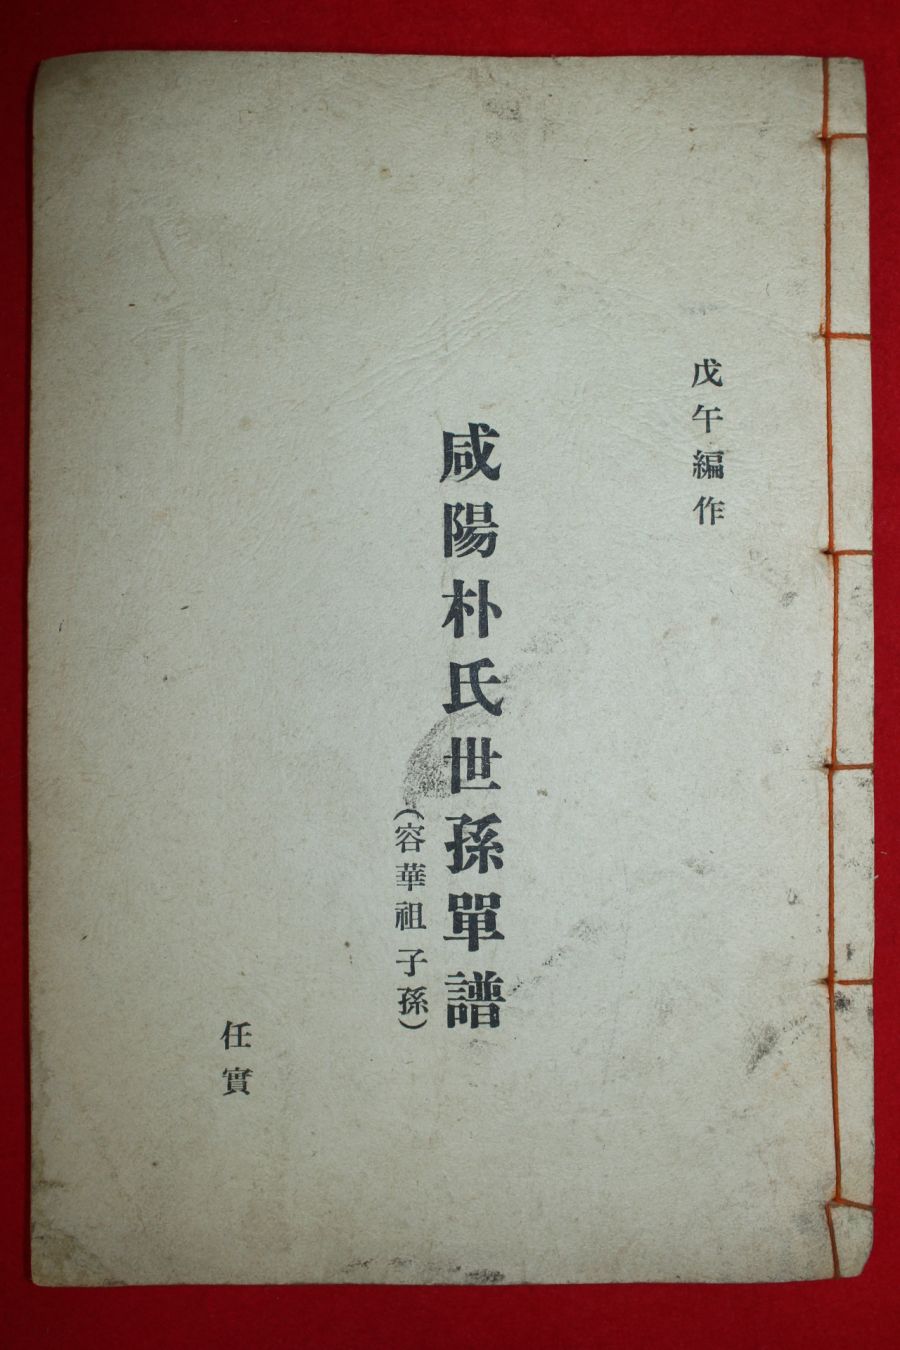 戊午編作
咸陽朴氏世孫單譜
(容華祖子孫)
任實